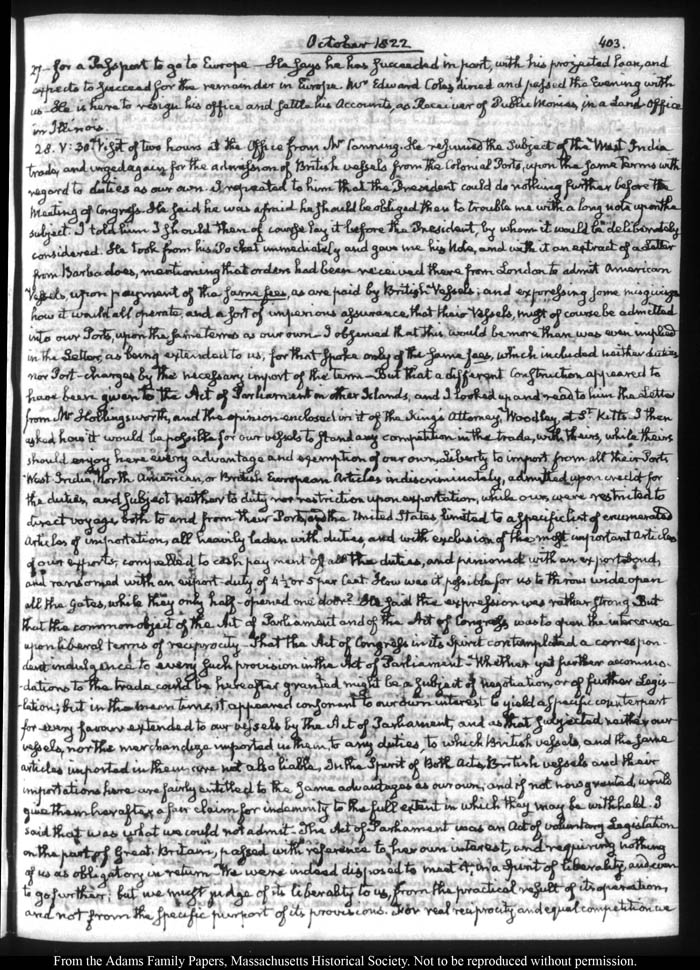 October 1822 403.
27— for a Passport to go to Europe — He says he has succeeded in part, with his projected Loan, and
expects to succeed for the remainder in Europe. Mr Edward Coles dined and passed the Evening with
us— He is here to resign his office and settle his Accounts, as Receiver of Public Monies, in a Land-Office
in Illinois.
28. V:30. Visit of two hours at the Office from Mr Canning. He resumed the Subject of the West India
trade, and urged again for the admission of British vessels from the Colonial Ports, upon the same terms with
regard to duties as our own. I repeated to him that the President could do nothing further before the
Meeting of Congress. He said he was afraid he should be obliged then to trouble me with a long note upon the
subject. I told him I should then of course lay it before the President, by whom it would be deliberately
considered. He took from his Pocket immediately and gave me his Note, and with it an extract of a Letter
from Barbadoes, mentioning that orders had been received there from London to admit American
Vessels, upon payment of the same fees, as are paid by British Vessels; and expressing some misgivings
how it would all operate, and a sort of imperious assurance, that their Vessels, must of course be admitted
into our Ports, upon the same terms as our own— I observed that this would be more than was even implied
in the Letter, as being extended to us, for that spoke only of the same fees, which included neither duties
nor Port-charges by the necessary import of the term— But that a different Construction appeared to
have been given to the Act of Parliament in other Islands, and I looked up and read to him the Letter
from Mr Hollingsworth, and the opinion enclosed in it of the King's Attorney, Woodley, at St. Kitts. I then
asked how it would be possible for our vessels to stand any competition in the trade, with theirs, while theirs
should enjoy here every advantage and exemption of our own, Liberty to import from all their Ports
West India, North American, or British European Articles indiscriminately, admitted upon credit for
the duties, and subject neither to duty nor restriction upon exportation, while ours, were restricted to
direct voyages both to and from their Ports, and the United States limited to a specific list of enumerated
Articles of importation, all heavily laden with duties, and with exclusion of the most important Articles
of our exports, compelled to cash payment of all the duties, and pinioned with an export bond,
and ransomed with an export duty of 4½ or 5 per Cent. How was it possible for us to throw wide open
all the gates, while they only half-opened one door? He said the expression was rather strong. But
that the common object of the Act of Parliament and of the Act of Congress was to open the intercourse
upon liberal terms of reciprocity— That the Act of Congress in its Spirit contemplated a correspon-
dent indulgence to every such provision in the Act of Parliament— Whether yet further accommo-
-dations to the trade could be hereafter granted might be a subject of negotiation, or of further Legis-
-lation; but in the mean time, it appeared consonant to our own interest to yield a specific counterpart
for every favour extended to our vessels by the Act of Parliament, and as that subjected neither our
vessels, nor the merchandize imported in them, to any duties, to which British vessels, and the same
articles imported in them are not also liable, In the Spirit of Both Acts, British vessels and their
importations here are fairly entitled to the same advantages as our own; and if not now granted, would
give them hereafter a fair claim for indemnity to the full extent in which they may be withheld. I
said that was what we could not admit— The Act of Parliament was an Act of voluntary Legislation
on the part of Great-Britain, passed with reference to her own interest, and requiring nothing
of us as obligatory in return. We were indeed disposed to meet it, in a Spirit of liberality, and even
to go further; but we must judge of its liberality to us, from the practical result of its operation,
and not from the specific purport of its provisions. For real reciprocity and equal competition we
From the Adams Family Papers, Massachusetts Historical Society. Not to be reproduced without permission.